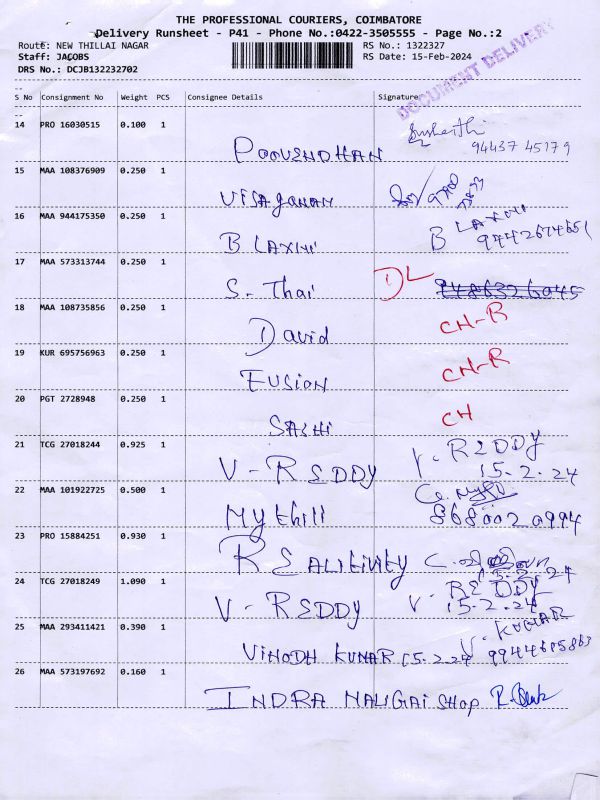 THE PROFESSIONAL COURIERS, COIMBATORE
Delivery Runsheet - P41 - Phone No.:0422-3505555 - Page No.:2
Route: NEW THILLAI NAGAR RS No.: 1322327
Staff: JACOBS RS Date: 15-Feb-2024
DRS No.: DCJB132232702
DOCUMENT DELIVERY
S No Consignment No Weight PCS Consignee Details Signature
14 PRO 16030515 0.100 1 POOVENDHAN 94437 45179
15 MAA 108376909 0.250 1 Visaganan
16 MAA 944175350 0.250 1 B LAXMI B LAXMI
17 MAA 573313744 0.250 1 S. Thai DL 9486326045
18 MAA 108735856 0.250 1 David CH-R
19 KUR 695756963 0.250 1 FUSION CH-R
20 PGT 2728948 0.250 1 SASHI CH
21 TCG 27018244 0.925 1 V - REDDY V. REDDY
15.2.24
22 MAA 101922725 0.500 1 Mythili 8680020994
23 PRO 15884251 0.930 1 REALITIVITY 15.2.24
24 TCG 27018249 1.090 1 V - REDDY V. REDDY
15.2.24
25 MAA 293411421 0.390 1 VINODH KUMAR 15.2.24 V. KUMAR
26 MAA 573197692 0.160 1 INDRA MALIGAI SHOP